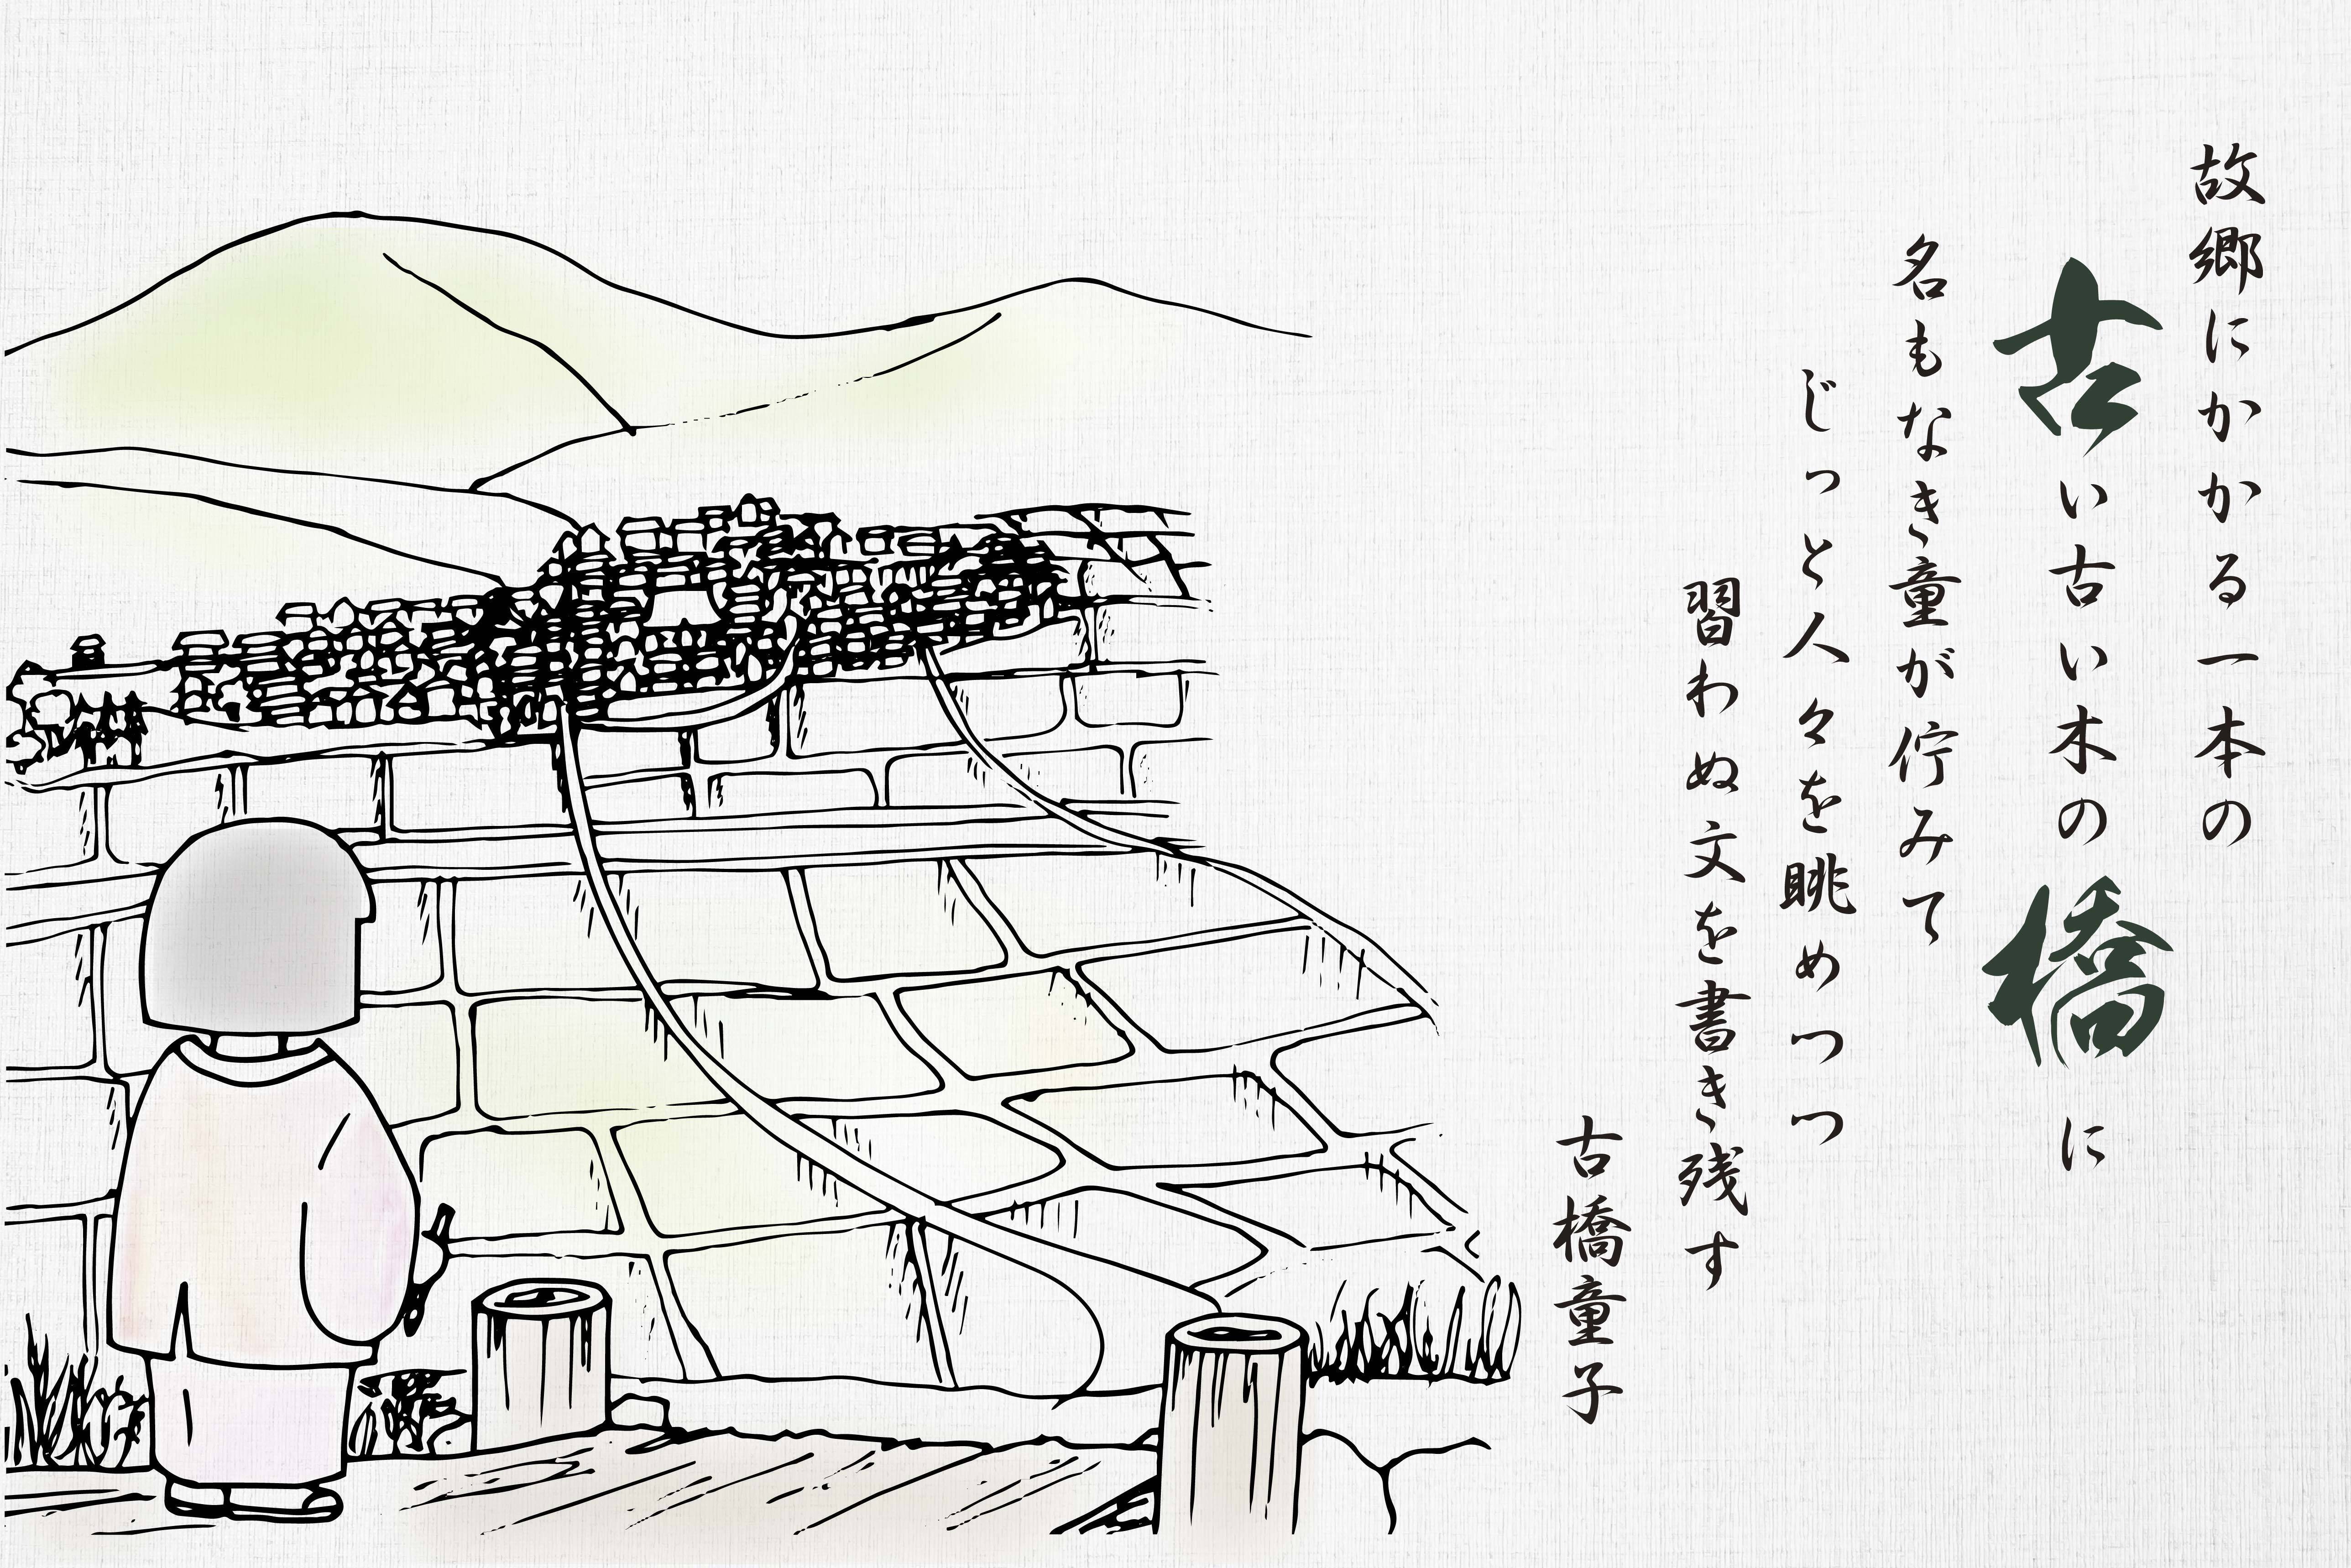 故郷にかかる一本の
古い古い木の橋に
名もなき童が佇みて
じっと人々を眺めつつ
習わぬ文を書き残す
古橋童子